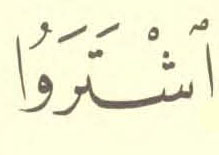 ٱشْتَرَوُا